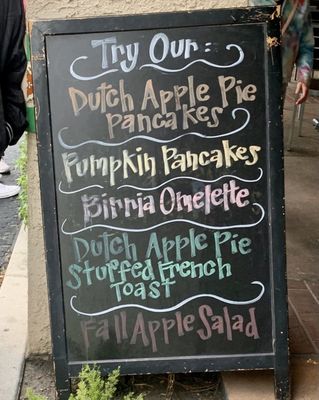 Try Our :
Dutch Apple Pie
Pancakes
Pumpkin Pancakes
Birria Omelette
Dutch Apple Pie
Stuffed French
Toast
Fall Apple Salad